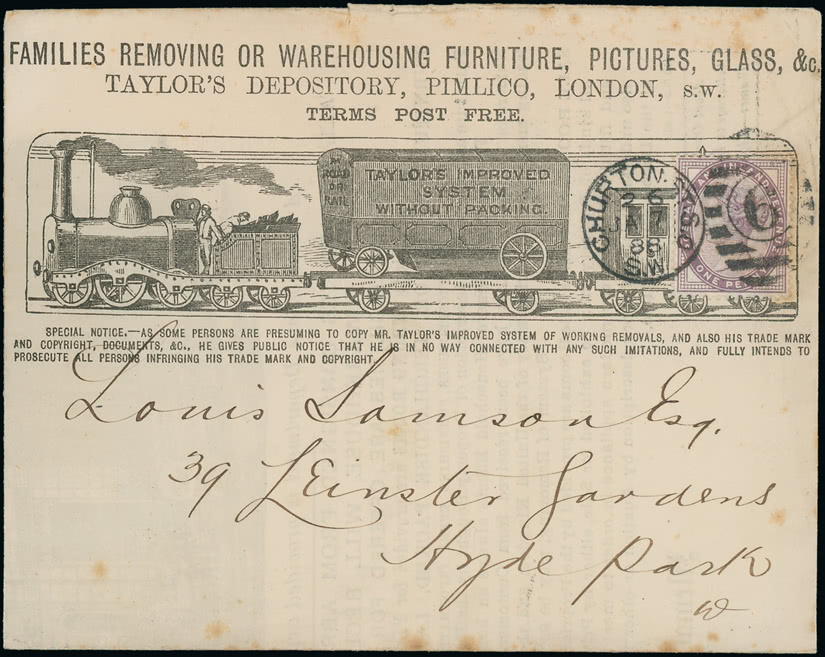 FAMILIES REMOVING OR WAREHOUSING FURNITURE, PICTURES, GLASS, &c.
TAYLOR'S DEPOSITORY, PIMLICO, LONDON, S.W.
TERMS POST FREE.
BY
ROAD
OR
RAIL
TAYLOR'S IMPROVED
SYSTEM
WITHOUT PACKING.
CHURTON ST.
26
JA 7
88
S.W.
6
ONE PENNY
SPECIAL NOTICE.—AS SOME PERSONS ARE PRESUMING TO COPY MR. TAYLOR'S IMPROVED SYSTEM OF WORKING REMOVALS, AND ALSO HIS TRADE MARK
AND COPYRIGHT, DOCUMENTS, &C., HE GIVES PUBLIC NOTICE THAT HE IS IN NO WAY CONNECTED WITH ANY SUCH IMITATIONS, AND FULLY INTENDS TO
PROSECUTE ALL PERSONS INFRINGING HIS TRADE MARK AND COPYRIGHT.
Louis Samson Esq.
39 Leinster Gardens
Hyde Park
W